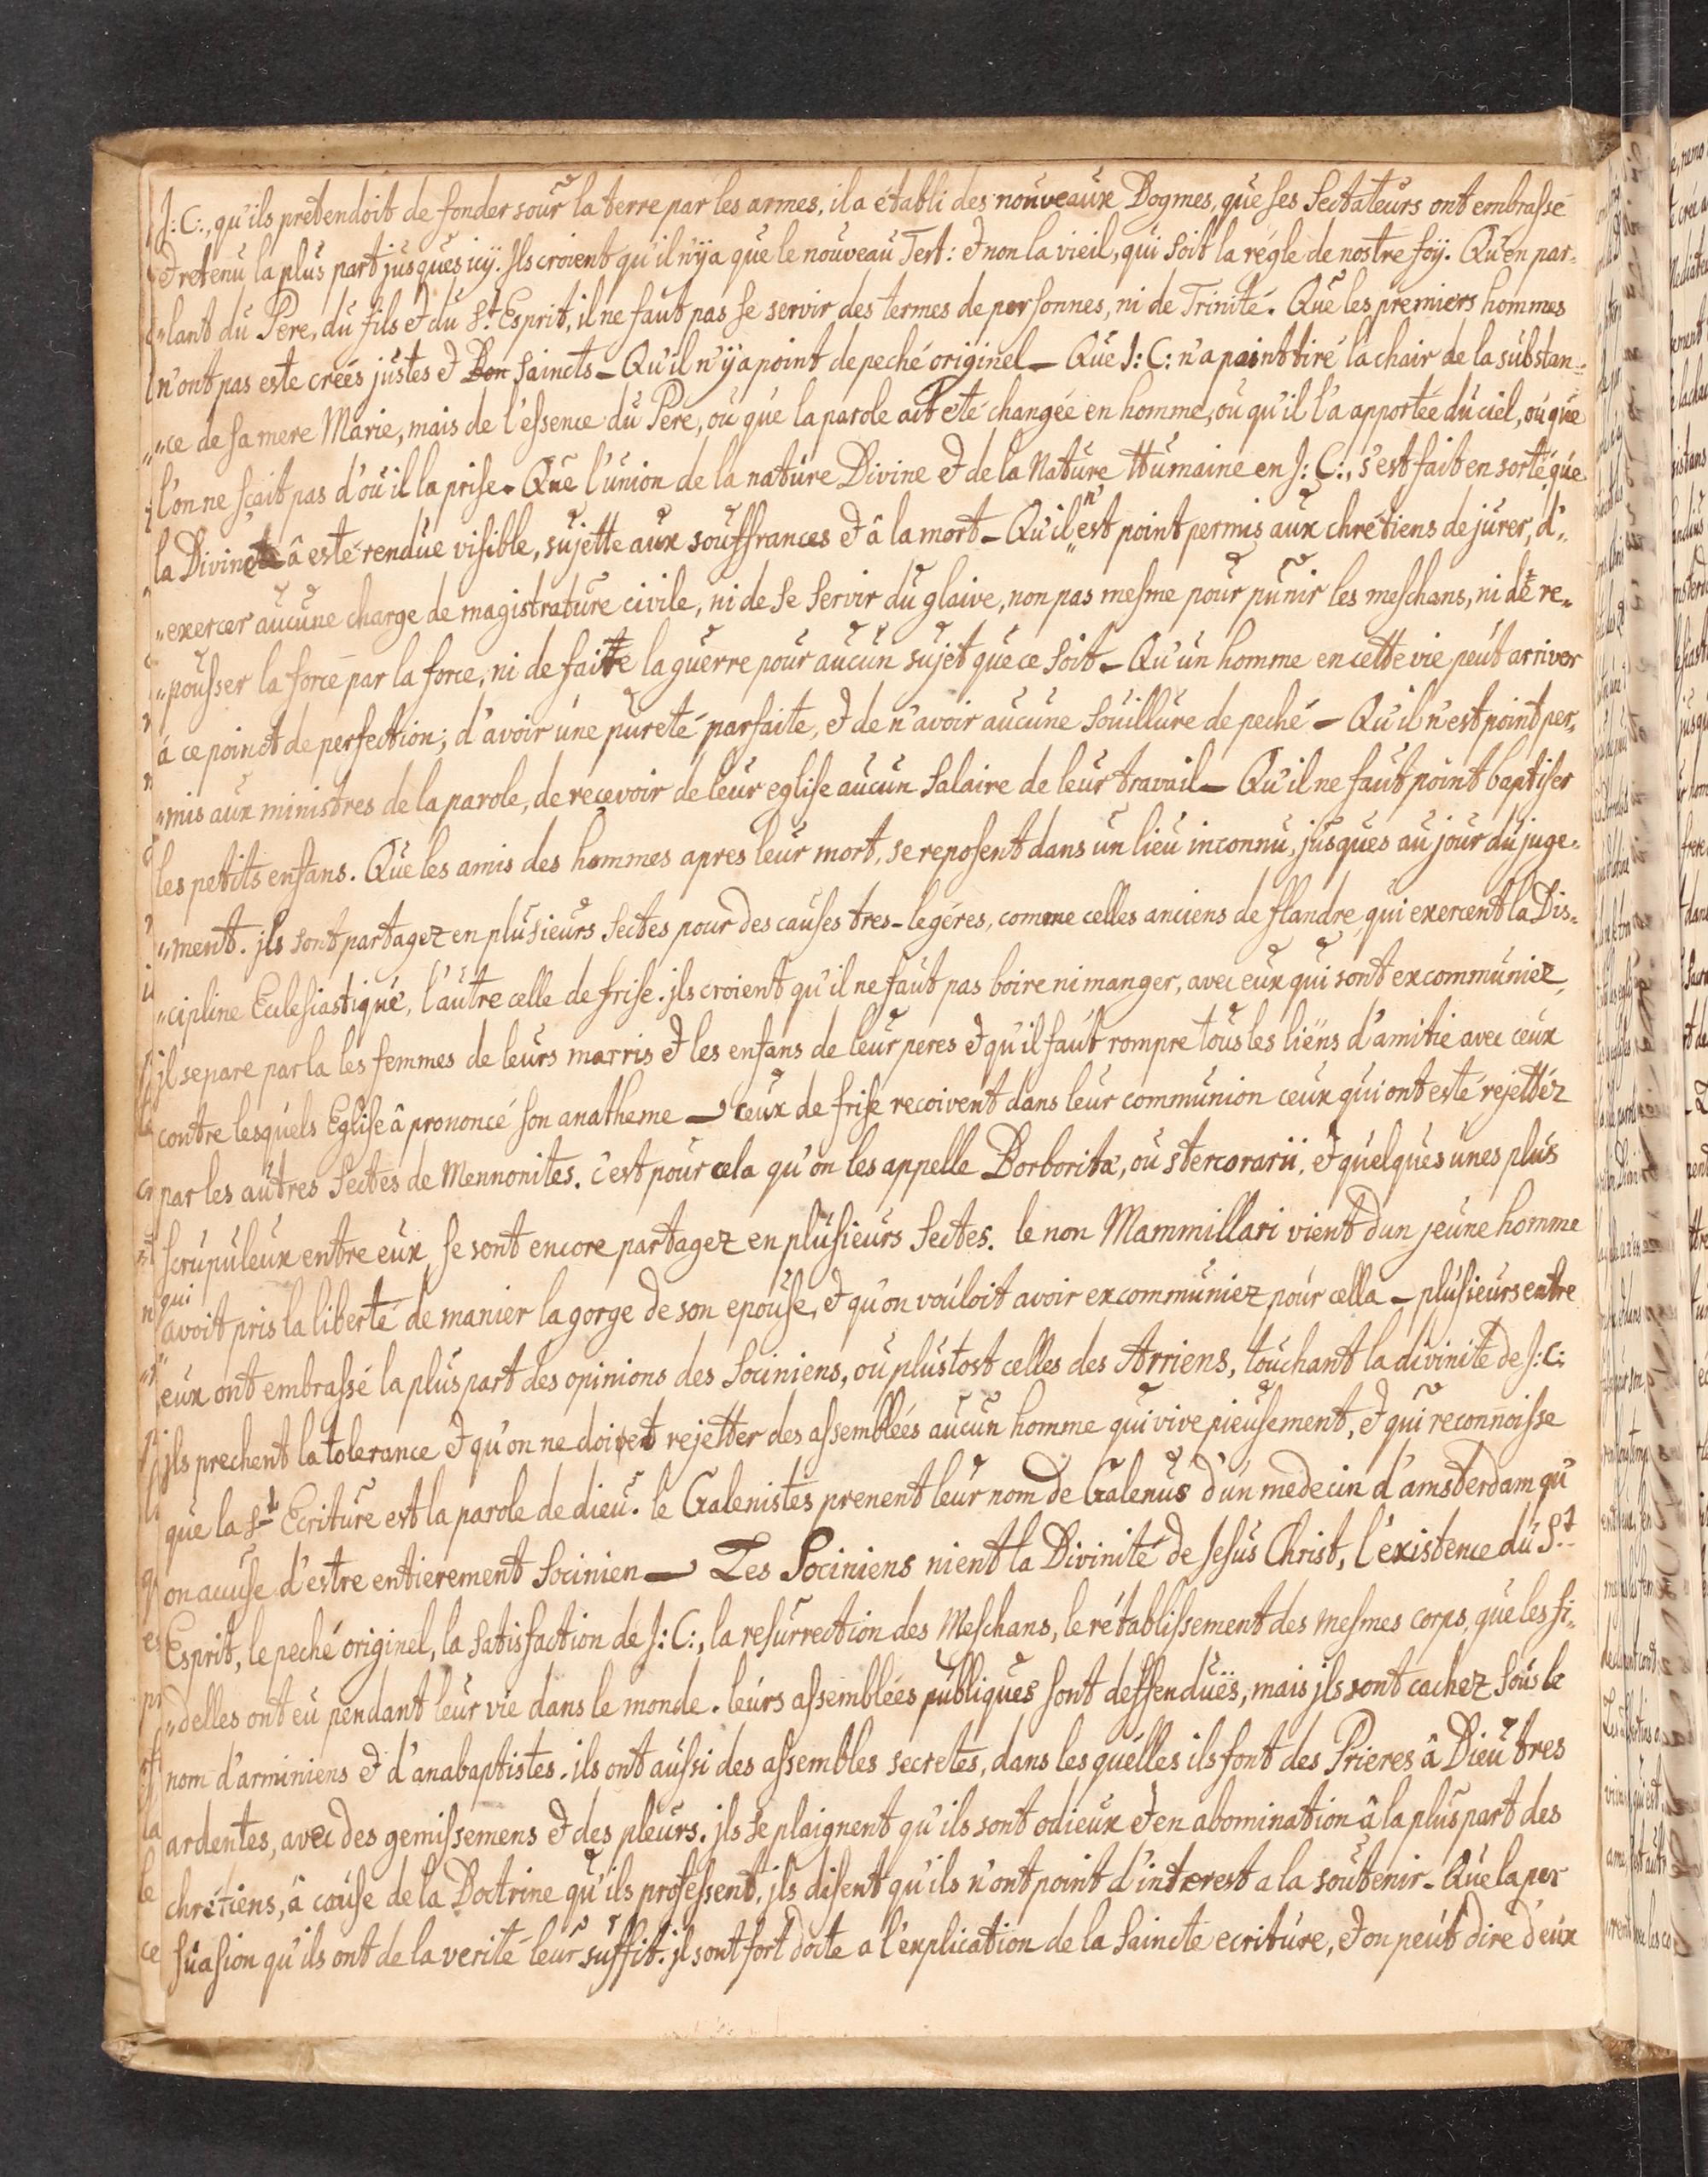 J: C:, qu'ils pretendoit de fonder sour la terre par les armes, il a établi des nouveaux Dogmes, que ses Sectateurs ont embrassé
et retenu la plus part jusques icÿ. Ils croient qu'il n'ÿ a que le nouveau Test: et non la vieil, qui soit la régle de nostre foÿ. Qu'en par=
„lant du Pere, du fils et du St Esprit, il ne faut pas se servir des termes de personnes, ni de Trinité. Que les premiers hommes
n'ont pas este crées justes et Bon saincts – Qu'il n'ÿ a point de peché originel – Que J: C: n'a point tiré la chair de la substan=
„ce de sa mere Marie, mais de l'essence du Pere, ou que la parole ait eté changée en homme, ou qu'il l'a apportée du ciel, ou que
l'on ne sçait pas d'ou il la prise. Que l'union de la nature Divine et de la Nature Humaine en J: C:, s'est fait en sorte que
la Divineté â esté rendue visible, sujette aux souffrances et â la mort – Qu'il n'est point permis aux chretiens de jurer, d'„
„exercer aucune charge de magistrature civile, ni de se servir du glaive, non pas mesme pour punir les meschans, ni de re„
„pousser la force par la force, ni de faitre la guerre pour aucun sujet que ce soit – Qu'un homme en cette vie peut arriver
á ce poinct de perfection; d'avoir une pureté parfaite, et de n'avoir aucune souillure de peché – Qu'il n'est point per„
„mis aux ministres de la parole, de reçevoir de leur eglise aucun salaire de leur travail – Qu'il ne faut point baptiser
les petits enfans. Que les amis des hommes apres leur mort, se reposent dans un lieu inconnu, jusques au jour du juge=
„ment. jls sont partagez en plusieurs sectes pour des causes tres-legéres, comme celles anciens de flandre, qui exercent la Dis=
„cipline Eclesiastique, l'autre celle de frise. jls croient qu'il ne faut pas boire ni manger, avec eux qui sont excommuniez,
jl separe par la les femmes de leurs marris et les enfans de leur peres et qu'il faut rompre tous les liëns d'amitie avec ceux
contre lesquels Eglise â prononcé son anatheme – ceux de frise recoivent dans leur communion ceux qui ont esté rejettéz
par les autres Sectes de Mennonites. c'est pour cela qu'on les appelle Borboritæ, ou stercorarii, et quelques unes plus
scrupuleux entre eux, se sont encore partagez en plusieurs Sectes. le non Mammillari vient dun jeune homme
qui
avoit pris la liberté de manier la gorge de son epouse, et qu'on vouloit avoir excommuniez pour cella – plusieurs entre
eux ont embrassé la plus part des opinions des Sociniens, ou plustost celles des Arriens, touchant la divinite de J: C:
jls prechent la tolerance et qu'on ne doivent rejetter des assemblées aucun homme qui vive pieusement, et qui reconnoisse
que la Ste Ecriture est la parole de dieu. le Galenistes prenent leur nom de Galenus d'un medecin d'amsterdam qu'
on accuse d'estre entierement Socinien – Les Sociniens nient la Divinité de Jesus Christ, l'existence du St
Esprit, le peché originel, la satisfaction de J: C:, la resurrection des Meschans, le rétablissement des mesmes corps, que les fi=
„delles ont eu pendant leur vie dans le monde. leurs assemblées publiques sont deffenduës, mais jls sont cachez sous le
nom d'arminiens et d'anabaptistes. ils ont aussi des assembles secretes, dans les quélles ils font des Prieres â Dieu tres
ardentes, avec des gemissemens et des pleurs. jls se plaignent qu'ils sont odieux et en abomination â la plus part des
chrétiens, â cause de la Doctrine qu'ils professent. jls disent qu'ils n'ont point d'interest a la soutenir – Que la per
suasion qu'ils ont de la verité leur suffit. jl sont fort docte a l'explication de la saincte ecriture, et on peut dire d'eux